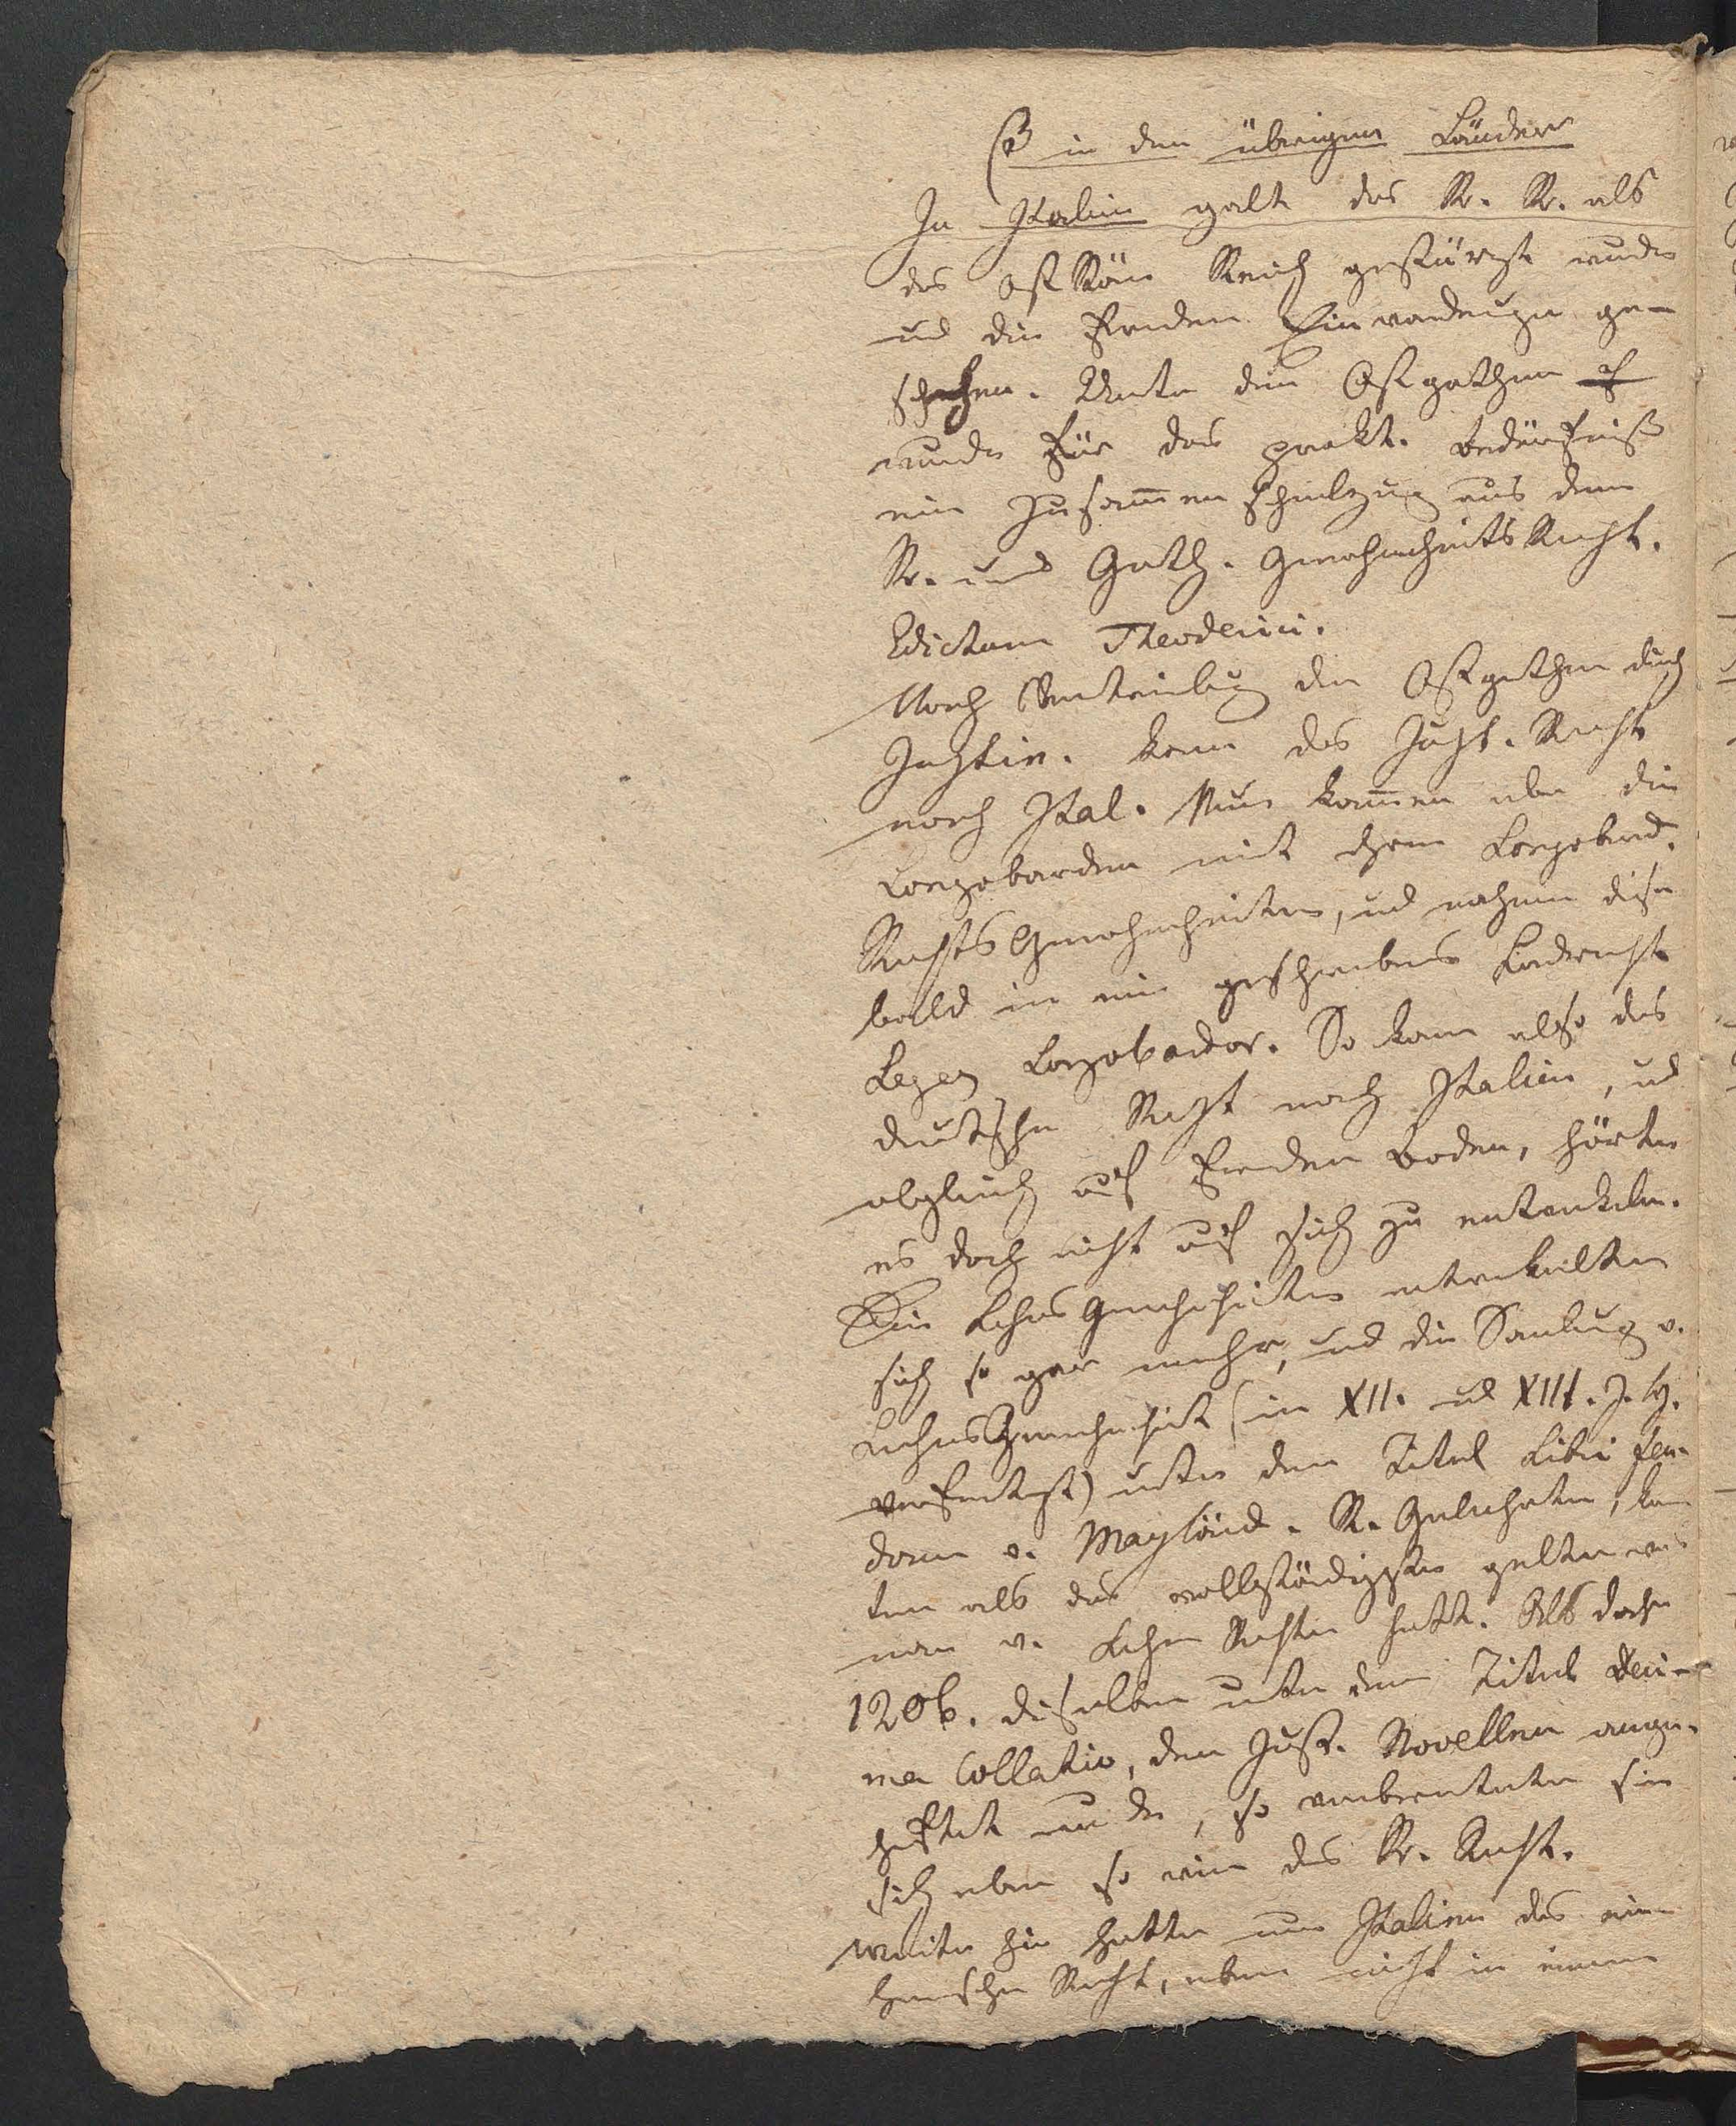 β in den übrigen Länder
In Italien galt das R. R. als
das OstRöm Reich gestürzt wurde
und die fremden Einwanderugen ge-
schehen. Unter den Ostgothen
wurde für das prakt. Bedürfniß
ein Zusam̅enschmelzug aus dem
R. und Goth. GewohnheitsRecht.
Edictum Theoderici.
Nach Vertreibug der Ostgothen durch
Justin. kam das Just. Recht
nach Ital. Nun kam̅en aber die
Longobarden mit ihren Longobard.
RechtsGewohnheiten, und nahmen diese
bald in ein geschriebenes Landrecht
Leges Longobardor. So kam also das
deutsche Recht nach Italien, und
obgleich auf fremden Boden, hörte
es doch nicht auf sich zu entwickeln.
Die LehnsGewohnheiten entwickelten
sich so gar mehr, und die Samlug v.
LehnsGewohnheit (im XII. und XIII. J. H.
verfertigt) unter dem Titel Libri feu-
dorum v. Mayländ. R. Gelehrten, kon
ten als das vollständigste gelten was
man v. Lehn Rechte hatt. Als daher
1206. dieselben unter dem Titel deci-
ma Collatio, den Just. Novellen ange-
heftet wurde, so verbreitete sie
sich eben so wie das R. Recht.
Weiter hin hatte nun Italien das ein
heimische Recht, aber nicht in einem